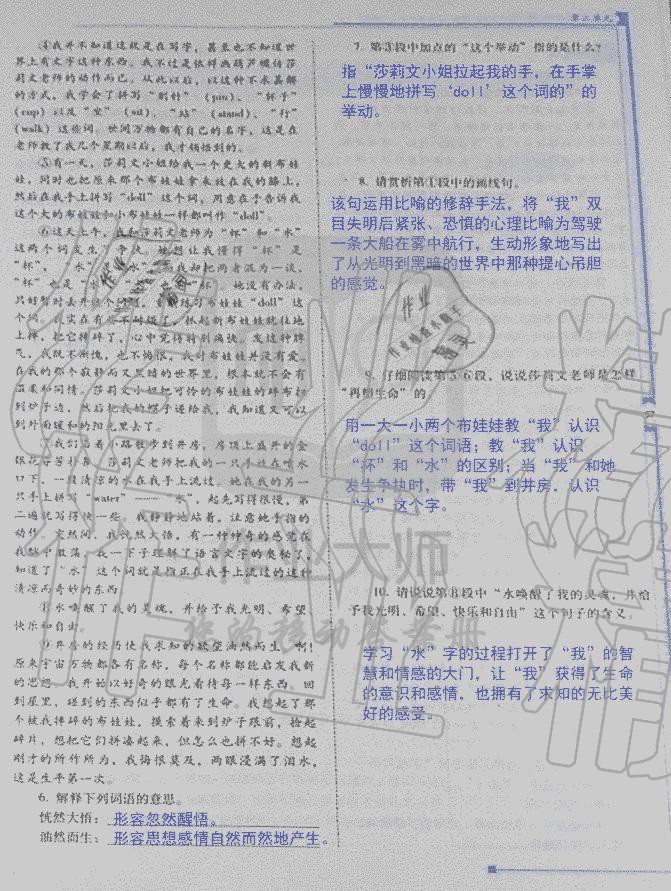 第三单元
④我并不知道这就是在写字，甚至也不知道世
界上有文字这种东西。我不过是依样画葫芦模仿莎
莉文老师的动作而已。从此以后，以这种不求甚解
的方式，我学会了拼写“别针”（pin）、“杯子”
（cup）以及“坐”（sit）、“站”（stand）、“行”
（walk）这些词。世间万物都有自己的名字，这是在
老师教了我几个星期以后，我才领悟到的。
⑤有一天，莎莉文小姐给我一个更大的新布娃
娃，同时也把原来那个布娃娃拿来放在我的膝上，
然后在我手上拼写“doll”这个词，用意在于告诉我
这个大的布娃娃和小布娃娃一样都叫作“doll”。
⑥这天上午，我和莎莉文老师为“杯”和“水”
这两个词发生了争执。她想让我懂得“杯”是
“杯”，“水”是“水”，而我却把两者混为一谈，
“杯”也是“水”，“水”也是“杯”。她没有办法，
只好暂时丢开这个问题，重新练习布娃娃“doll”这
个词。我实在有些不耐烦了，抓起新布娃娃就往地
上摔，把它摔碎了，心中觉得特别痛快。发这种脾
气，我既不惭愧，也不悔恨，我对布娃娃并没有爱。
在我的那个寂静而又黑暗的世界里，根本就不会有
温柔和同情。莎莉文小姐把可怜的布娃娃的碎布扫
到炉子边，然后把我的帽子递给我，我知道又可以
到外面暖和的阳光里去了。
⑦我们沿着小路散步到井房，房顶上盛开的金
银花芬芳扑鼻。莎莉文老师把我的一只手放在喷水
口下，一股清凉的水在我手上流过。她在我的另一
只手上拼写“water”——“水”，起先写得很慢，第
二遍就写得快一些。我静静地站着，注意她手指的
动作。突然间，我恍然大悟，有一种神奇的感觉在
我脑中激荡，我一下子理解了语言文字的奥秘了，
知道了“水”这个词就是指正在我手上流过的这种
清凉而奇妙的东西。
⑧水唤醒了我的灵魂，并给予我光明、希望、
快乐和自由。
⑨井房的经历使我求知的欲望油然而生。啊！
原来宇宙万物都各有名称，每个名称都能启发我新
的思想。我开始以好奇的眼光看待每一样东西。回
到屋里，碰到的东西似乎都有了生命。我想起了那
个被我摔碎的布娃娃，摸索着来到炉子跟前，捡起
碎片，想把它们拼凑起来，但怎么也拼不好。想起
刚才的所作所为，我悔恨莫及，两眼浸满了泪水，
这是生平第一次。
6. 解释下列词语的意思。
恍然大悟：形容忽然醒悟。
油然而生：形容思想感情自然而然地产生。
7. 第③段中加点的“这个举动”指的是什么？
指“莎莉文小姐拉起我的手，在手掌
上慢慢地拼写‘doll’这个词的”的
举动。
8. 请赏析第①段中的画线句。
该句运用比喻的修辞手法，将“我”双
目失明后紧张、恐惧的心理比喻为驾驶
一条大船在雾中航行，生动形象地写出
了从光明到黑暗的世界中那种提心吊胆
的感觉。
9. 仔细阅读第⑤⑥段，说说莎莉文老师是怎样
“再塑生命”的。
用一大一小两个布娃娃教“我”认识
“doll”这个词语；教“我”认识
“杯”和“水”的区别；当“我”和她
发生争执时，带“我”到井房，认识
“水”这个字。
10. 请说说第⑧段中“水唤醒了我的灵魂，并给
予我光明、希望、快乐和自由”这个句子的含义。
学习“水”字的过程打开了“我”的智
慧和情感的大门，让“我”获得了生命
的意识和感情，也拥有了求知的无比美
好的感受。